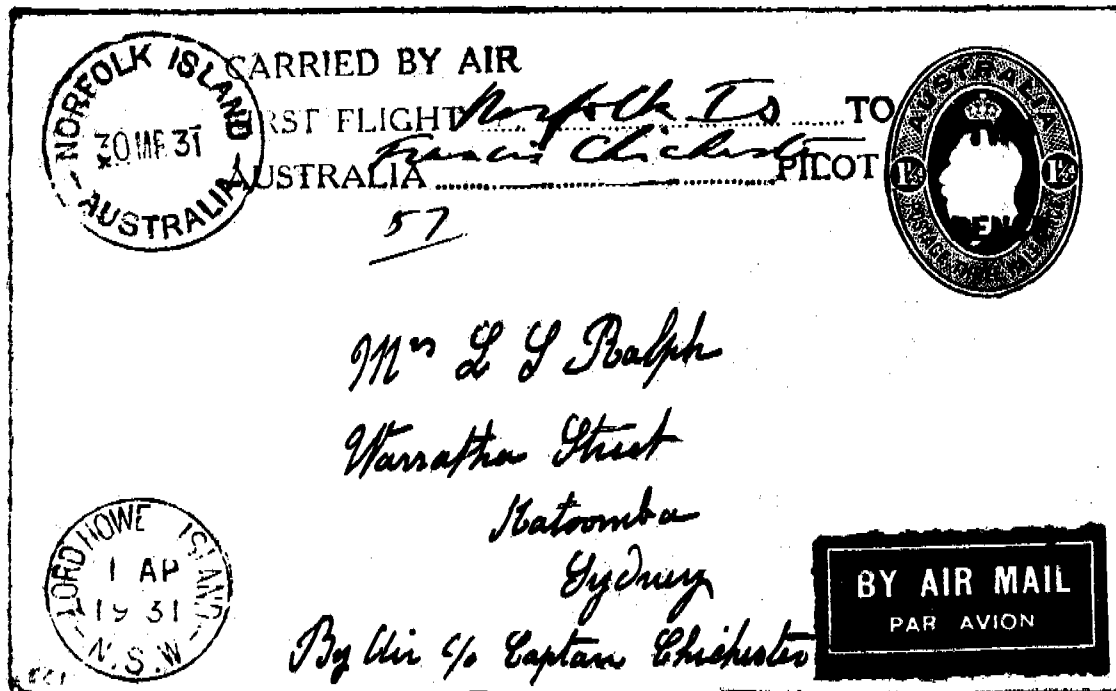 NORFOLK ISLAND
30 MAR 31
AUSTRALIA
CARRIED BY AIR
FIRST FLIGHT Norfolk Is TO
AUSTRALIA Francis Chichester PILOT
57
AUSTRALIA
1½ 1½
PENCE
Mrs L S Ralph
Warratha Street
Katoomba
Sydney
By Air c/o Captain Chichester
LORD HOWE ISLAND
1 AP
19 31
N.S.W
BY AIR MAIL
PAR AVION